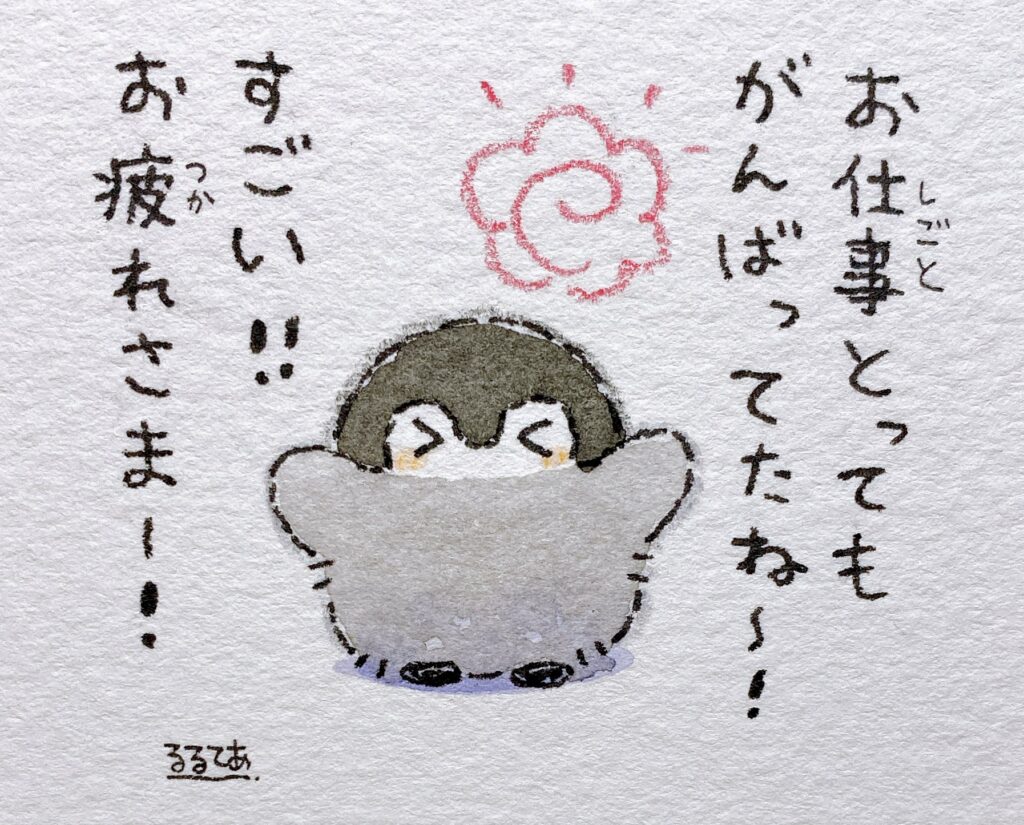 お仕事とっても
しごと
がんばってたね〜!
すごい!!
お疲れさまー!
つか
るるてあ.